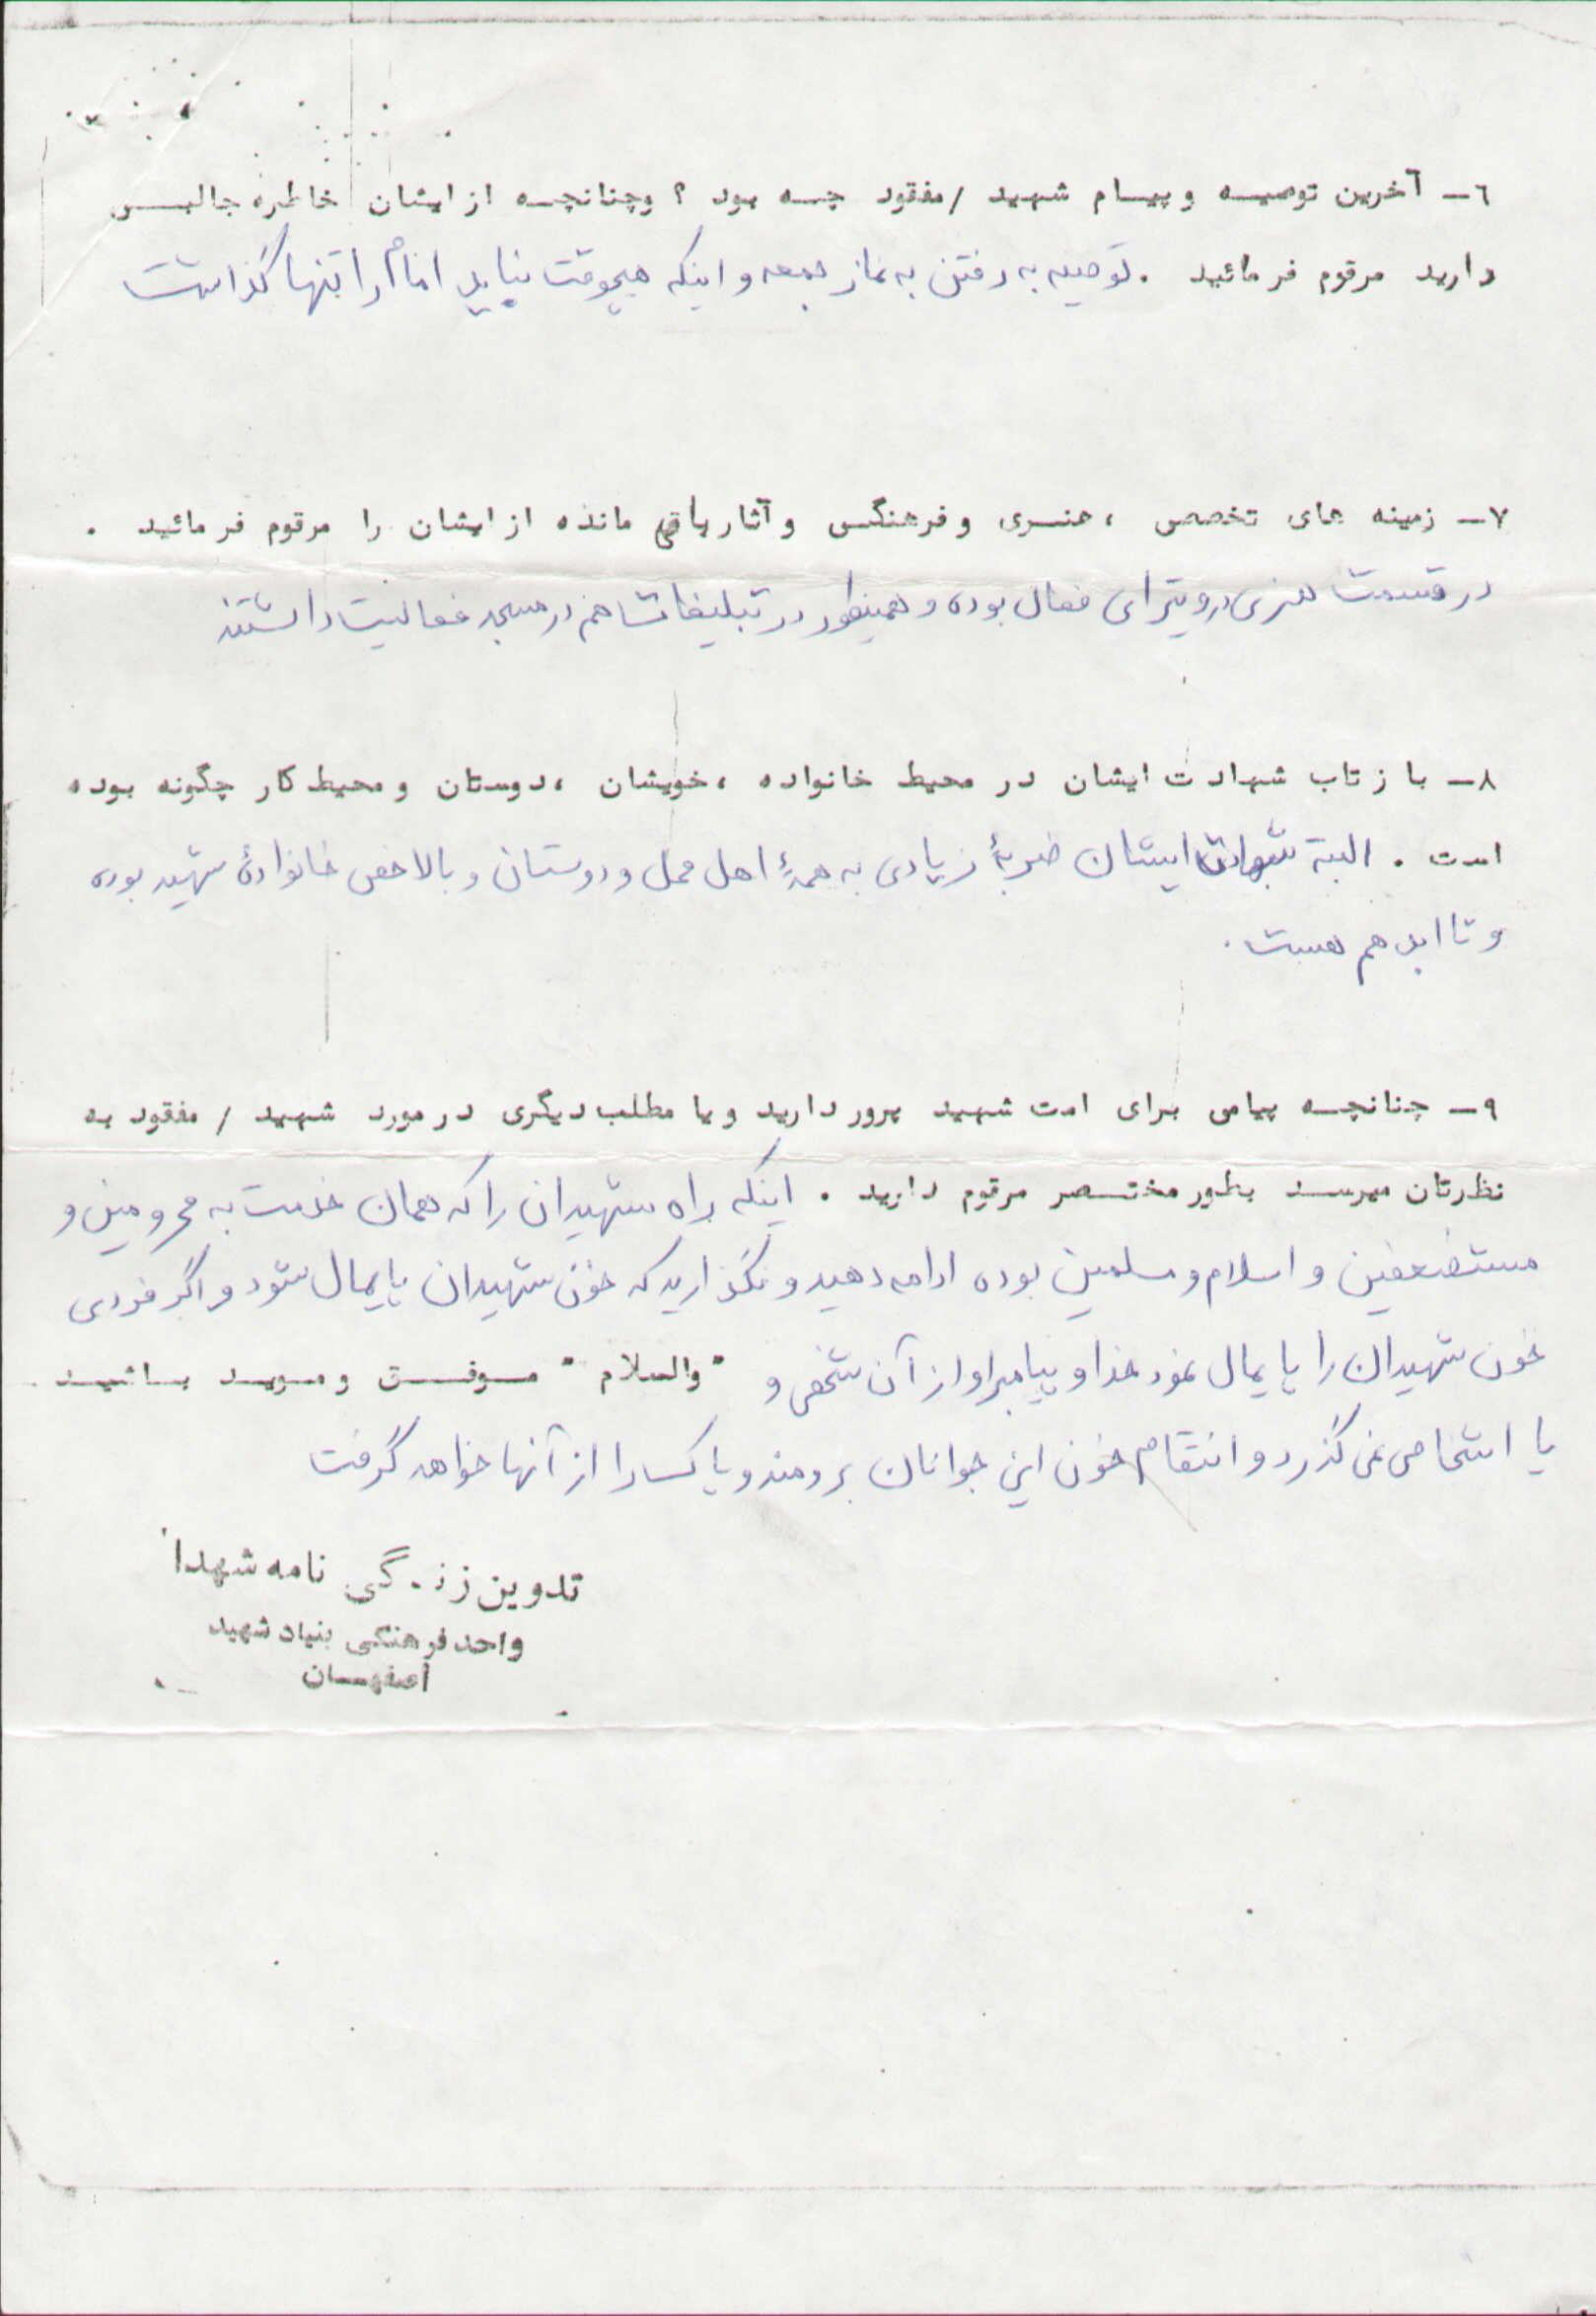 ٦ـ آخرین توصیه و پیام شهید / مفقود چه بود ؟ وچنانچه از ایشان خاطره جالبی
دارید مرقوم فرمائید . توصیه به رفتن به نماز جمعه و اینکه هیچوقت نباید امام را تنها گذاشت
٧ـ زمینه های تخصصی ، هنری و فرهنگی و آثار باقی مانده از ایشان را مرقوم فرمائید .
در قسمت هنری در ویترای فعال بوده و همینطور در تبلیغات هم در مسجد فعالیت داشتند
٨ـ بازتاب شهادت ایشان در محیط خانواده ، خویشان ، دوستان و محیط کار چگونه بوده
است . البته شهادت ایشان ضربهٔ زیادی به همهٔ اهل محل و دوستان و بالاخص خانوادهٔ شهید بوده
و تا ابد هم هست .
٩ـ چنانچه پیامی برای امت شهید پرور دارید و یا مطلب دیگری در مورد شهید / مفقود به
نظرتان میرسد بطور مختصر مرقوم دارید . اینکه راه شهیدان را که همان خدمت به محرومین و
مستضعفین و اسلام و مسلمین بوده ادامه دهید و نگذارید که خون شهیدان پایمال شود و اگر فردی
خون شهیدان را پایمال نمود خدا و پیامبر او از آن شخص و " والسلام " موفق و موید باشید
یا اشخاص نمی گذرد و انتقام خون این جوانان برومند و پاک را از آنها خواهد گرفت
تدوین زندگی نامه شهدا
واحد فرهنگی بنیاد شهید
اصفهان